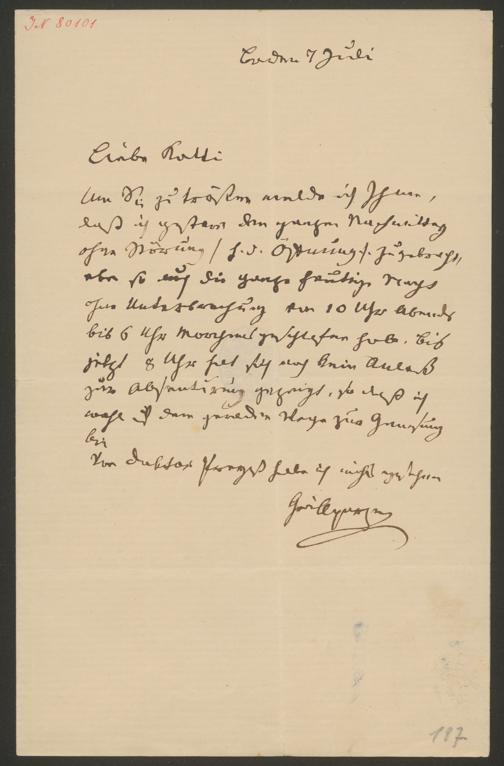 IN 80101
Baden 7 Juli
Liebe Katti
Um Sie zu trösten melde ich Ihnen,
daß ich gestern den ganzen Nachmittag
ohne Störung / h.d. Öffnung /. zugebracht,
eben so auch die ganze heutige Nacht
ohne Unterbrechung von 10 Uhr Abends
bis 6 Uhr Morgens geschlafen habe. Bis
jetzt 8 Uhr hat sich noch kein Anlaß
zur Absentirung gezeigt, so daß ich
wohl auf dem geraden Wege zur Genesung
bin
Von Doktor habe ich nichts gesehen
Grillparzer
187